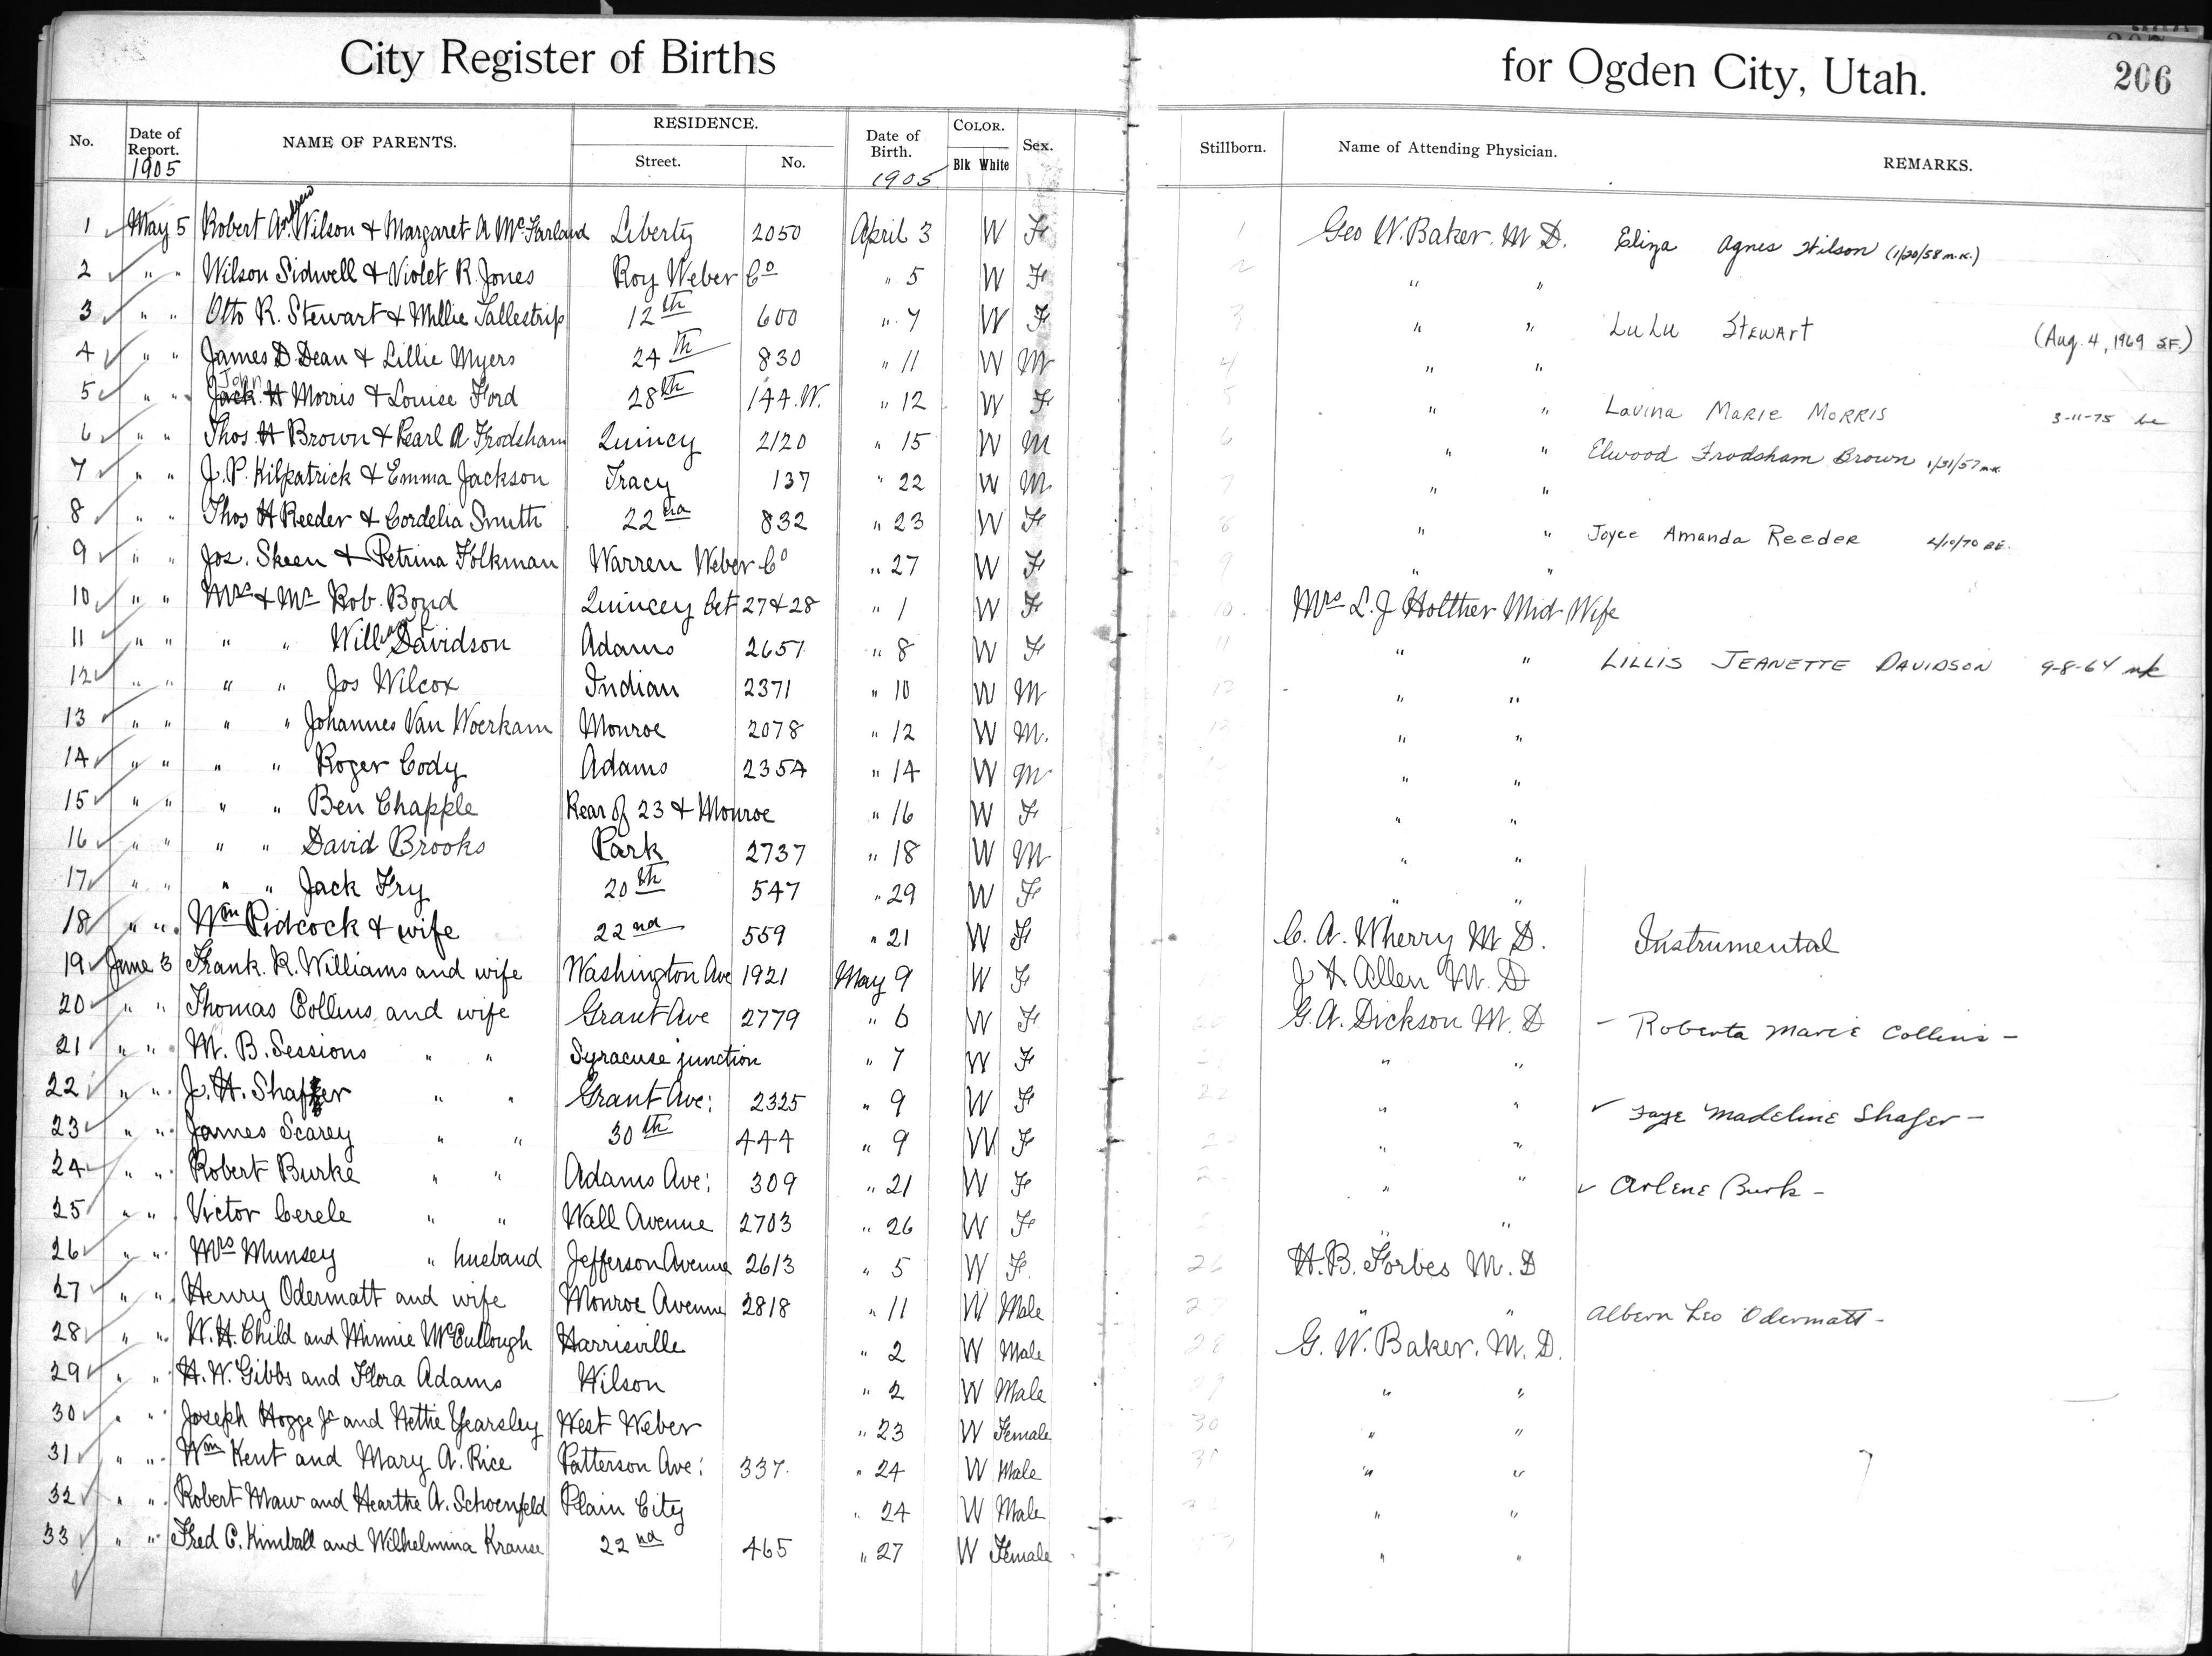 City Register of Births for Ogden City, Utah. 206
No. Date of Report. 1905 NAME OF PARENTS. RESIDENCE. Street. No. Date of Birth. 1905 COLOR. Blk White Sex. Stillborn. Name of Attending Physician. REMARKS.
1 May 5 Robert Andrew Wilson & Margaret A McFarland Liberty 2050 April 3 W F 1 Geo W. Baker. M D. Eliza Agnes Wilson (1/20/58 m.k.)
2 " " Wilson Sidwell & Violet R. Jones Roy Weber Co " 5 W F 2 " "
3 " " Otto R. Stewart & Millie Tallestrip 12th 600 " 7 W F 3 " " LuLu Stewart (Aug. 4, 1969 S.F.)
4 " " James D. Dean & Lillie Myers 24th 830 " 11 W M 4 " "
5 " " John Jack. H Morris & Louise Ford 28th 144.W. " 12 W F 5 " " Lavina Marie Morris 3-11-75 be
6 " " Thos. H Brown & Pearl A Frodsham Quincy 2120 " 15 W M 6 " " Elwood Frodsham Brown 1/31/57 mk
7 " " J. P. Kilpatrick & Emma Jackson Tracy 137 " 22 W M 7 " "
8 " " Thos H Reeder & Cordelia Smith 22nd 832 " 23 W F 8 " " Joyce Amanda Reeder 2/10/70 BE.
9 " " Jos. Skeen & Petrina Folkman Warren Weber Co " 27 W F 9 " "
10 " " Mrs & Mr Rob. Bond Quincey bet 27 & 28 " 1 W F 10 Mrs L. J Holther Mid Wife
11 " " " " William Davidson Adams 2651 " 8 W F 11 " " LILLIS JEANETTE DAVIDSON 9-8-64 mk
12 " " " " Jos Wilcox Indian 2371 " 10 W M 12 " "
13 " " " " Johannes Van Woerkam Monroe 2078 " 12 W M. 13 " "
14 " " " " Roger Cody Adams 2354 " 14 W M " "
15 " " " " Ben Chapple Rear of 23 & Monroe " 16 W F " "
16 " " " " David Brooks Park 2737 " 18 W M " "
17 " " " " Jack Fry 20th 547 " 29 W F " "
18 " " Wm Pidcock & wife 22nd 559 " 21 W F C. A. Wherry M D. Instrumental
19 June 3 Frank. R. Williams and wife Washington Ave 1921 May 9 W F J. A. Allen M. D
20 " " Thomas Collins and wife Grant Ave 2779 " 6 W F 20 G. A. Dickson M. D - Roberta Marie Collins -
21 " " M. B. Sessions " " Syracuse junction " 7 W F 21 " "
22 " " J. H. Shafer " " Grant Ave: 2325 " 9 W F 22 " " Faye Madeline Shafer -
23 " " James Scarey " " 30th 444 " 9 W F " "
24 " " Robert Burke " " Adams Ave: 309 " 21 W F " " Arlene Burk -
25 " " Victor Cerele " " Wall Avenue 2703 " 26 W F " "
26 " " Mrs Munsey " husband Jefferson Avenue 2613 " 5 W F. 26 H. B. Forbes M. D
27 " " Henry Odermatt and wife Monroe Avenue 2818 " 11 W Male 27 " " Albern Leo Odermatt -
28 " " W. H. Child and Minnie McCullough Harrisville " 2 W Male 28 G. W. Baker. M. D.
29 " " H. W. Gibbs and Flora Adams Wilson " 2 W Male 29 " "
30 " " Joseph Hogge Jr and Nettie Yearsley West Weber " 23 W Female 30 " "
31 " " Wm Kent and Mary A. Rice Patterson Ave: 337. " 24 W Male 31 " "
32 " " Robert Maw and Hearthe A. Schoenfeld Plain City " 24 W Male " "
33 " " Fred C. Kimball and Wilhelmina Krause 22nd 465 " 27 W Female " "